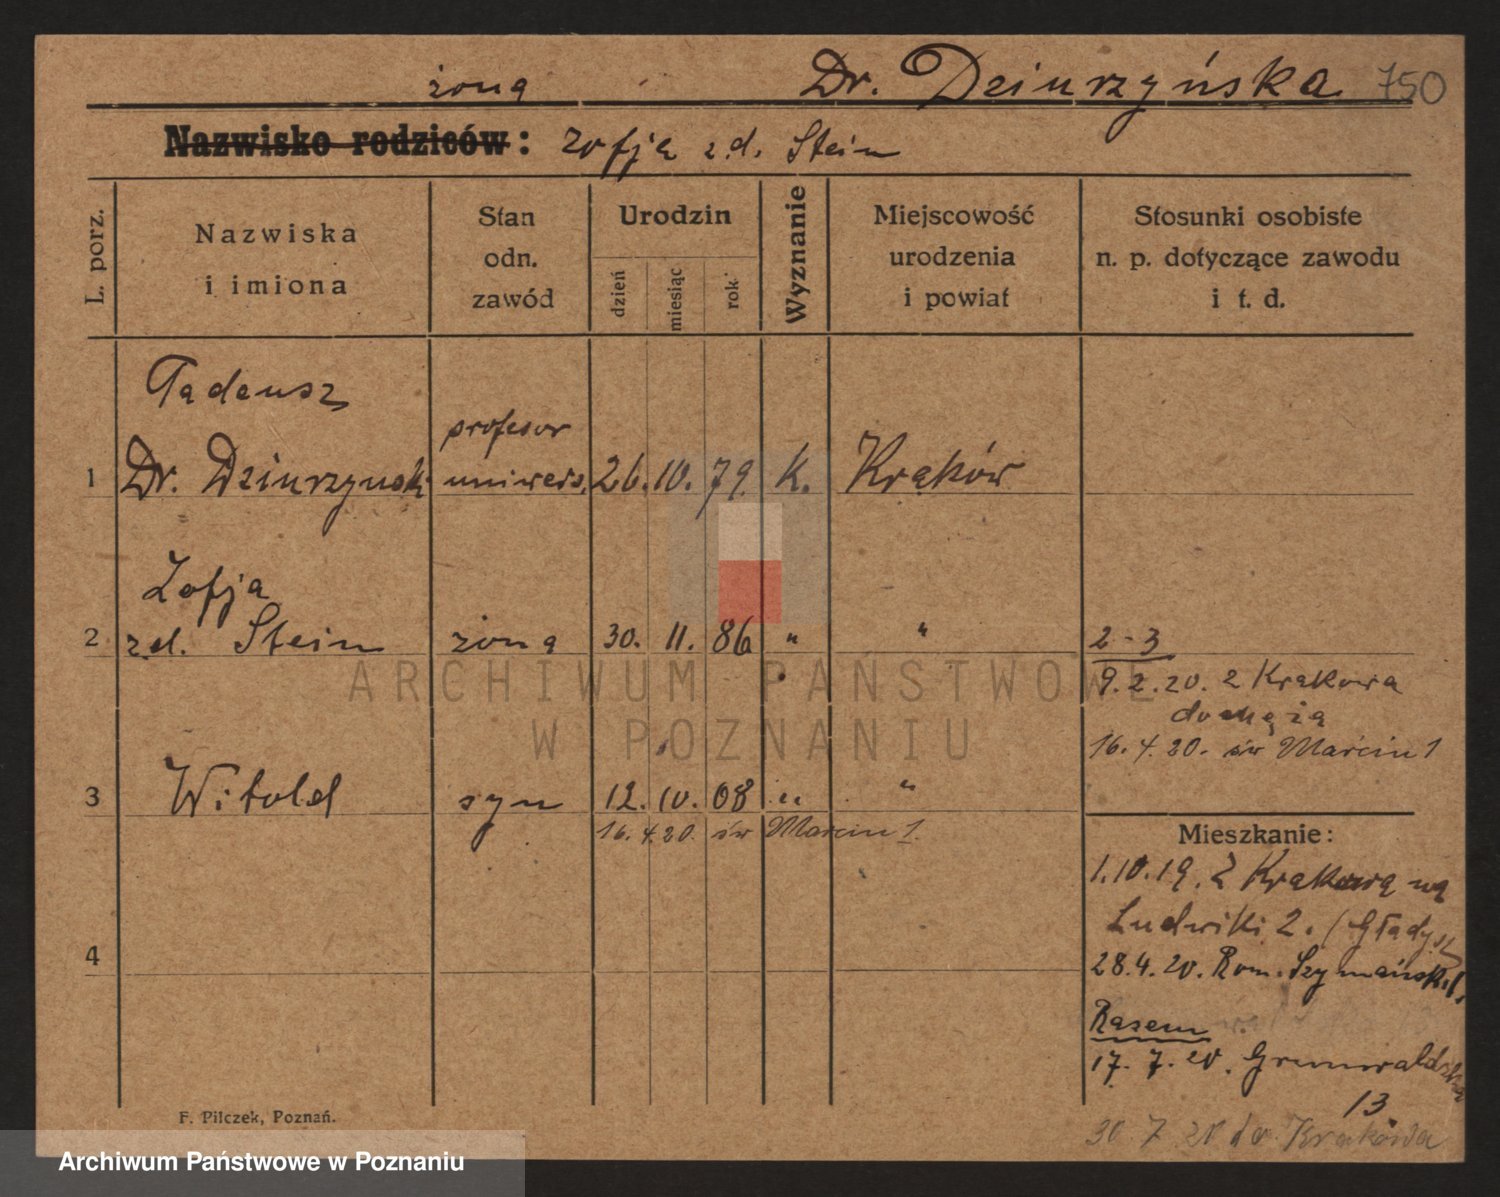 żona Dr. Dziurzyńska 750
Nazwisko rodziców: Zofja z.d. Stein
L. porz.
Nazwiska
i imiona
Stan
odn.
zawód
Urodzin
dzień
miesiąc
rok
Wyznanie
Miejscowość
urodzenia
i powiat
Stosunki osobiste
n. p. dotyczące zawodu
i t. d.
Tadeusz
profesor
1 Dr. Dziurzynski uniwers. 26. 10. 79. K. Kraków
Zofja
2 z.d. Stein żona 30. 11. 86 " " 2-3
9.2.20. z Krakowa
do męża
16. 4. 20. św Marcin 1
3 Witold syn 12. 10. 08 " "
16. 4. 20. św Marcin 1.
Mieszkanie:
1.10.19. z Krakowa na
Ludwiki 2. (Gładysz
4
28.4.20. Rom. Szymańsk. 1.
Razem
17. 7. 20. Grunwaldzka
13.
30 7 20 do Krakowa
F. Pilczek, Poznań.
ARCHIWUM PAŃSTWOWE
W POZNANIU
Archiwum Państwowe w Poznaniu